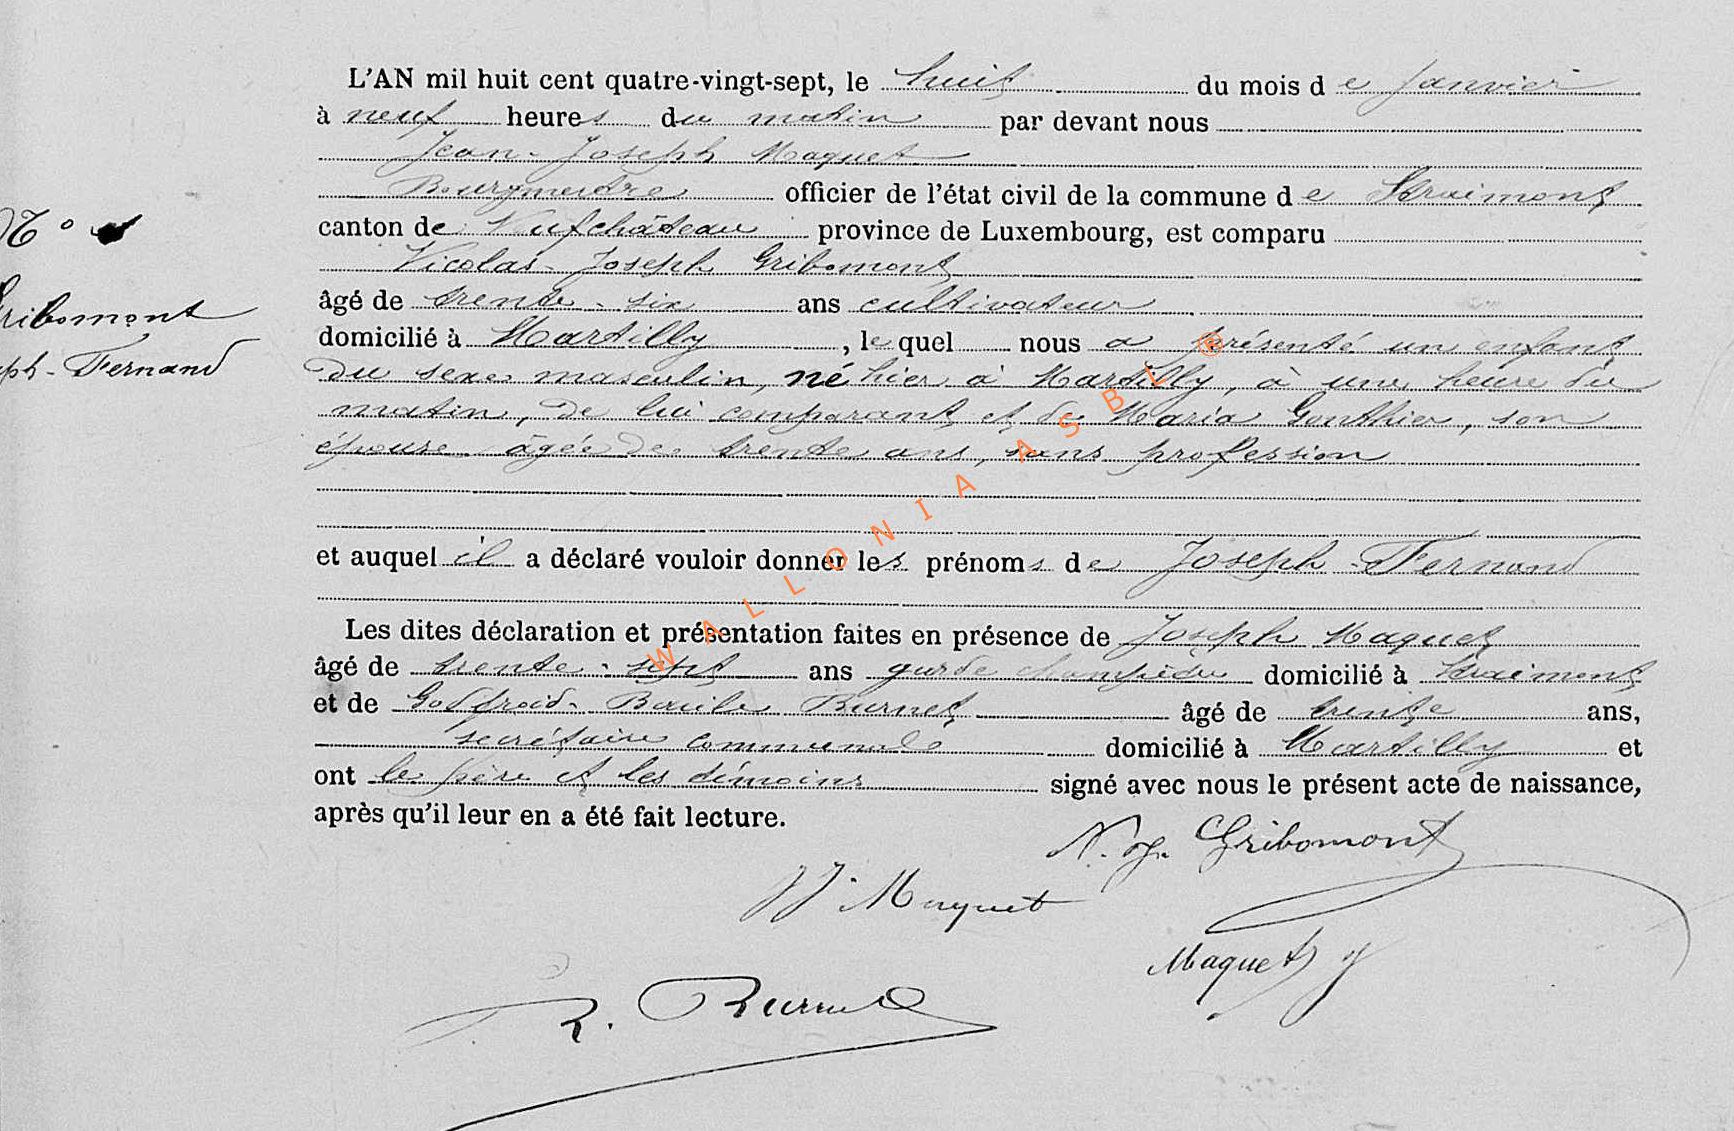 L'AN mil huit cent quatre-vingt-sept, le huit du mois de janvier
à neuf heures du matin par devant nous
Jean-Joseph Maquet
Bourgmestre officier de l'état civil de la commune de Straimont
canton de Neufchâteau province de Luxembourg, est comparu
Nicolas-Joseph Gribomont
âgé de trente-six ans cultivateur
domicilié à Martilly, lequel nous a présenté un enfant
du sexe masculin, né hier à Martilly, à une heure du
matin, de lui comparant et de Maria Gonthier, son
épouse âgée de trente ans, sans profession
et auquel il a déclaré vouloir donner les prénoms de Joseph-Fernand
Les dites déclaration et présentation faites en présence de Joseph Maquet
âgé de trente-sept ans garde champêtre domicilié à Straimont
et de Godfroid- Burnet âgé de trente ans,
secrétaire communal domicilié à Martilly et
ont le père et les témoins signé avec nous le présent acte de naissance,
après qu'il leur en a été fait lecture.
N° 
Gribomont
Joseph-Fernand
N. Jh. Gribomont
JJ. Maquet
Maquet J
Burnet
WALLONIA ASBL ®